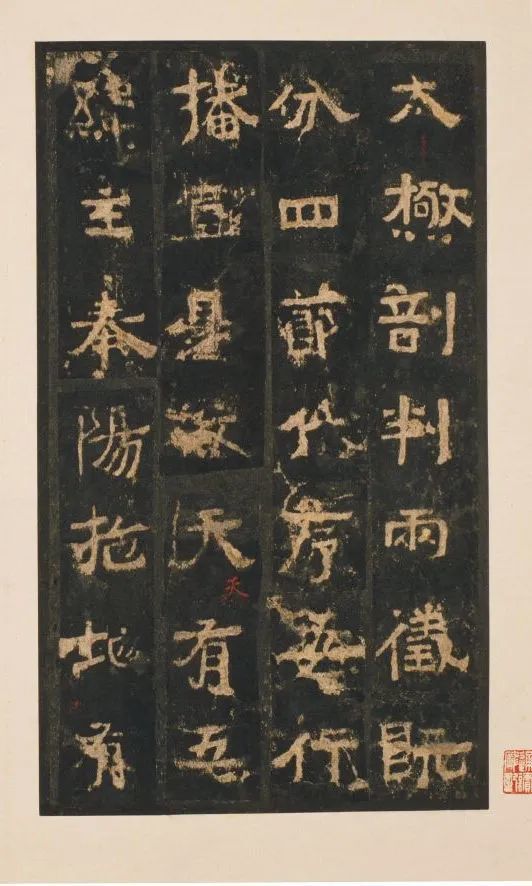 太極剖判兩既
分四節代序行
播宣是故天有五
主奉陽施地有
天